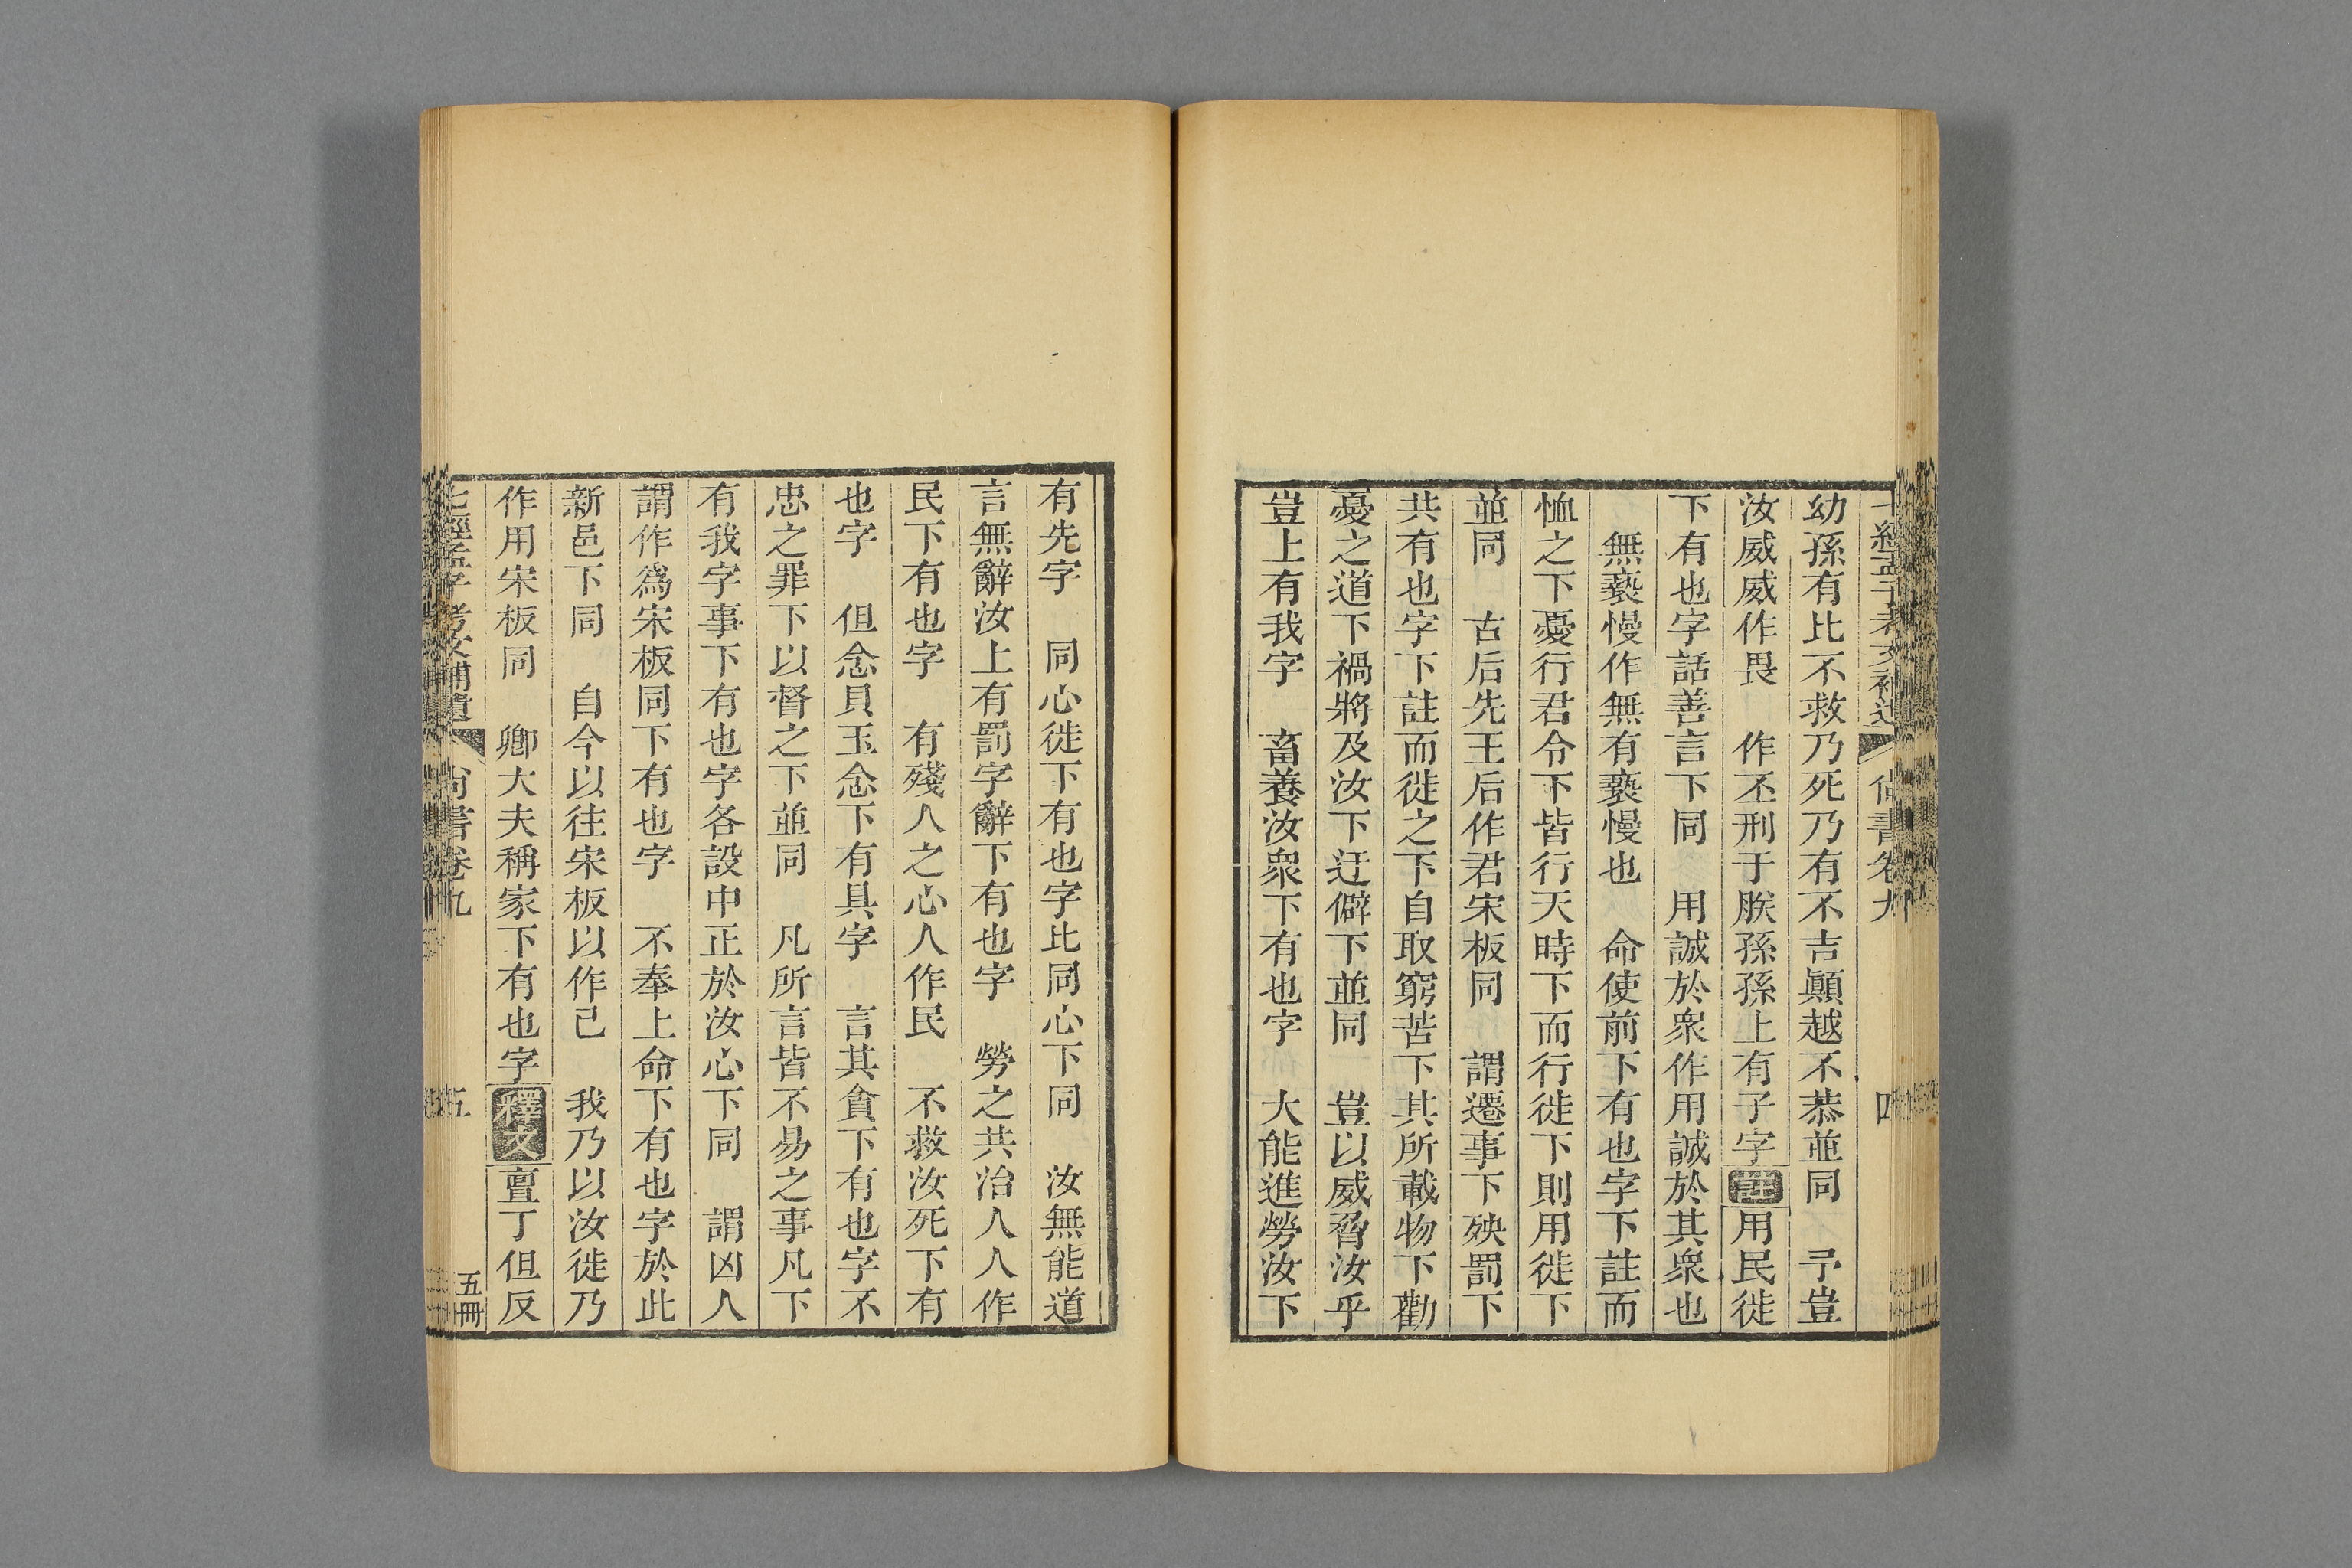 七經孟子考文補遺 尚書卷九 四
幼孫有比不救乃死乃有不吉顚越不恭並同 予豈
汝威威作畏 作丕刑于朕孫孫上有子字註用民徙
下有也字話善言下同 用誠於衆作用誠於其衆也
無褻慢作無有褻慢也 命使前下有也字下註而
恤之下憂行君令下皆行天時下而行徙下則用徙下
並同 古后先王后作君宋板同 謂遷事下殃罰下
共有也字下註而徙之下自取窮苦下其所載物下勸
憂之道下禍將及汝下迂僻下並同 豈以威脅汝乎
豈上有我字 畜養汝衆下有也字 大能進勞汝下
有先字 同心徙下有也字比同心下同 汝無能道
言無辭汝上有罰字辭下有也字 勞之共治人人作
民下有也字 有殘人之心人作民 不救汝死下有
也字 但念貝玉念下有具字 言其貪下有也字不
忠之罪下以督之下並同 凡所言皆不易之事凡下
有我字事下有也字各設中正於汝心下同 謂凶人
謂作爲宋板同下有也字 不奉上命下有也字於此
新邑下同 自今以往宋板以作已 我乃以汝徙乃
作用宋板同 卿大夫稱家下有也字釋文亶丁但反
七經孟子考文補遺 尚書卷九 五 五冊